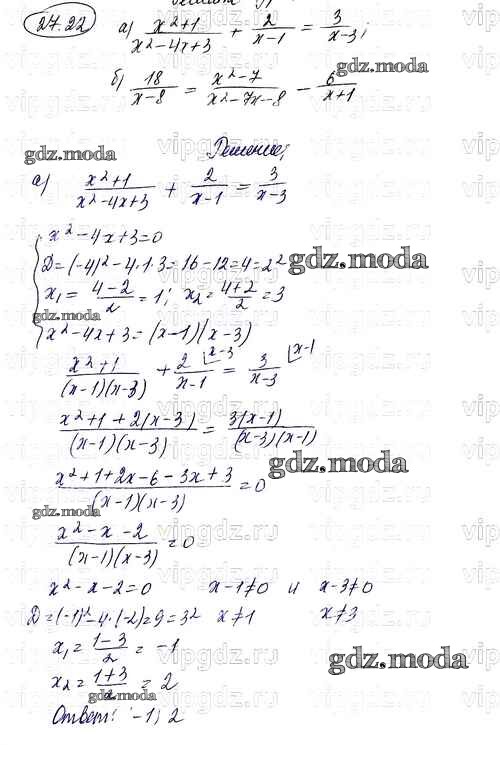 27.22 а) x²+1/x²-4x+3 + 2/x-1 = 3/x-3;
б) 18/x-8 = x²-7/x²-7x-8 - 6/x+1
gdz.moda
Решение;
gdz.moda
а) x²+1/x²-4x+3 + 2/x-1 = 3/x-3
x²-4x+3=0
D=(-4)²-4·1·3=16-12=4=2²
gdz.moda
x₁= 4-2/2 =1; x₂= 4+2/2 =3
gdz.moda
x²-4x+3=(x-1)(x-3)
x²+1/(x-1)(x-3) + 2/x-1 |x-3 = 3/x-3 |x-1
x²+1+2(x-3)/(x-1)(x-3) = 3(x-1)/(x-3)(x-1)
gdz.moda
x²+1+2x-6-3x+3/(x-1)(x-3) =0
gdz.moda
x²-x-2/(x-1)(x-3) =0
x²-x-2=0 x-1≠0 и x-3≠0
D=(-1)²-4·(-2)=9=3² x≠1 x≠3
x₁= 1-3/2 = -1
gdz.moda
x₂= 1+3/2 = 2
gdz.moda
Ответ: -1; 2
vipgdz.ru